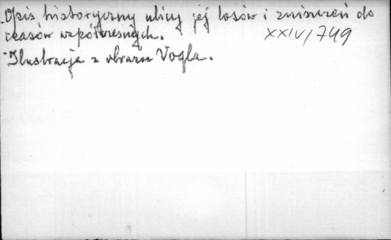 Opis historyczny ulicy jej losów i zniszczeń do
czasów współczesnych. XXIV/749
Ilustracja z obrazu Vogla.